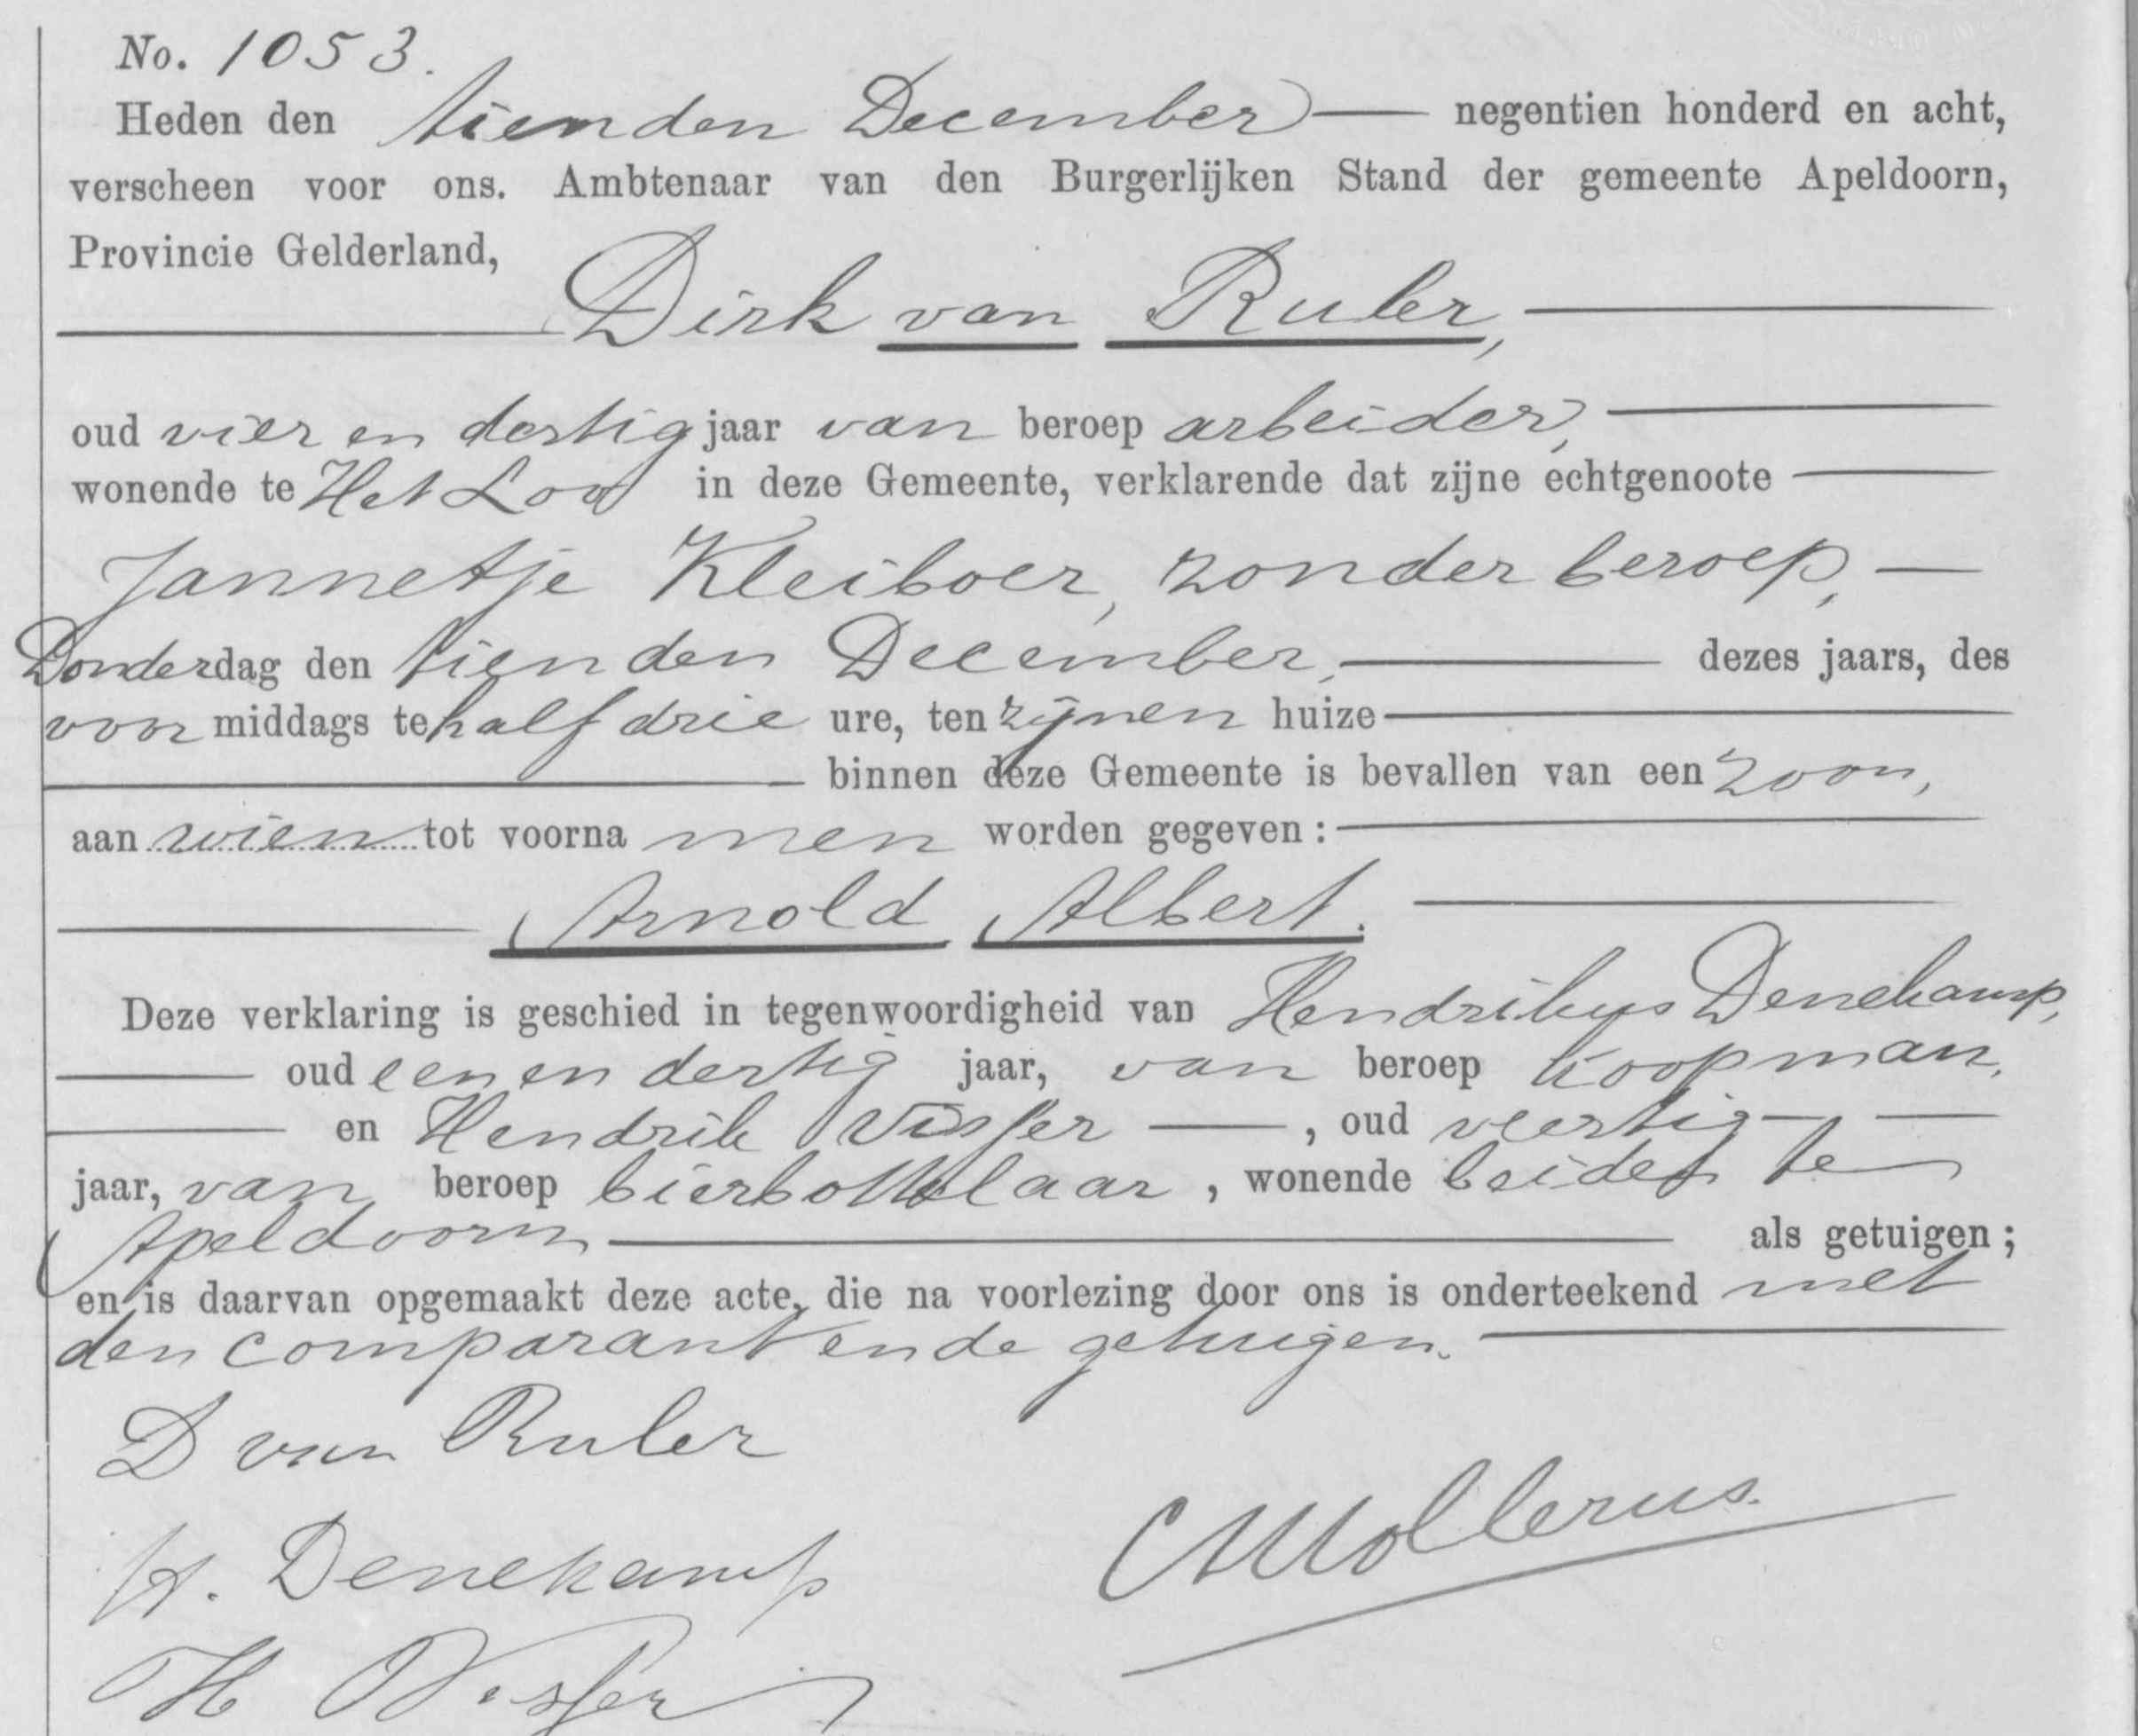 No. 1053.
Heden den tienden December negentien honderd en acht,
verscheen voor ons. Ambtenaar van den Burgerlijken Stand der gemeente Apeldoorn,
Provincie Gelderland,
Dirk van Ruler,
oud vier en dertig jaar van beroep arbeider,
wonende te Het Loo in deze Gemeente, verklarende dat zijne echtgenoote
Jannetje Kleiboer, zonder beroep,
Donderdag den tienden December, dezes jaars, des
voor middags te half drie ure, ten zijnen huize
binnen deze Gemeente is bevallen van een zoon,
aan wien tot voorna men worden gegeven:
Arnold Albert.
Deze verklaring is geschied in tegenwoordigheid van Hendrikus Denekamp,
oud een en dertig jaar, van beroep koopman,
en Hendrik Visser, oud veertig
jaar, van beroep bierbottelaar, wonende beiden te
Apeldoorn als getuigen;
en is daarvan opgemaakt deze acte, die na voorlezing door ons is onderteekend met
den comparant en de getuigen.
D van Ruler
CMollerus.
H. Denekamp
H Visser